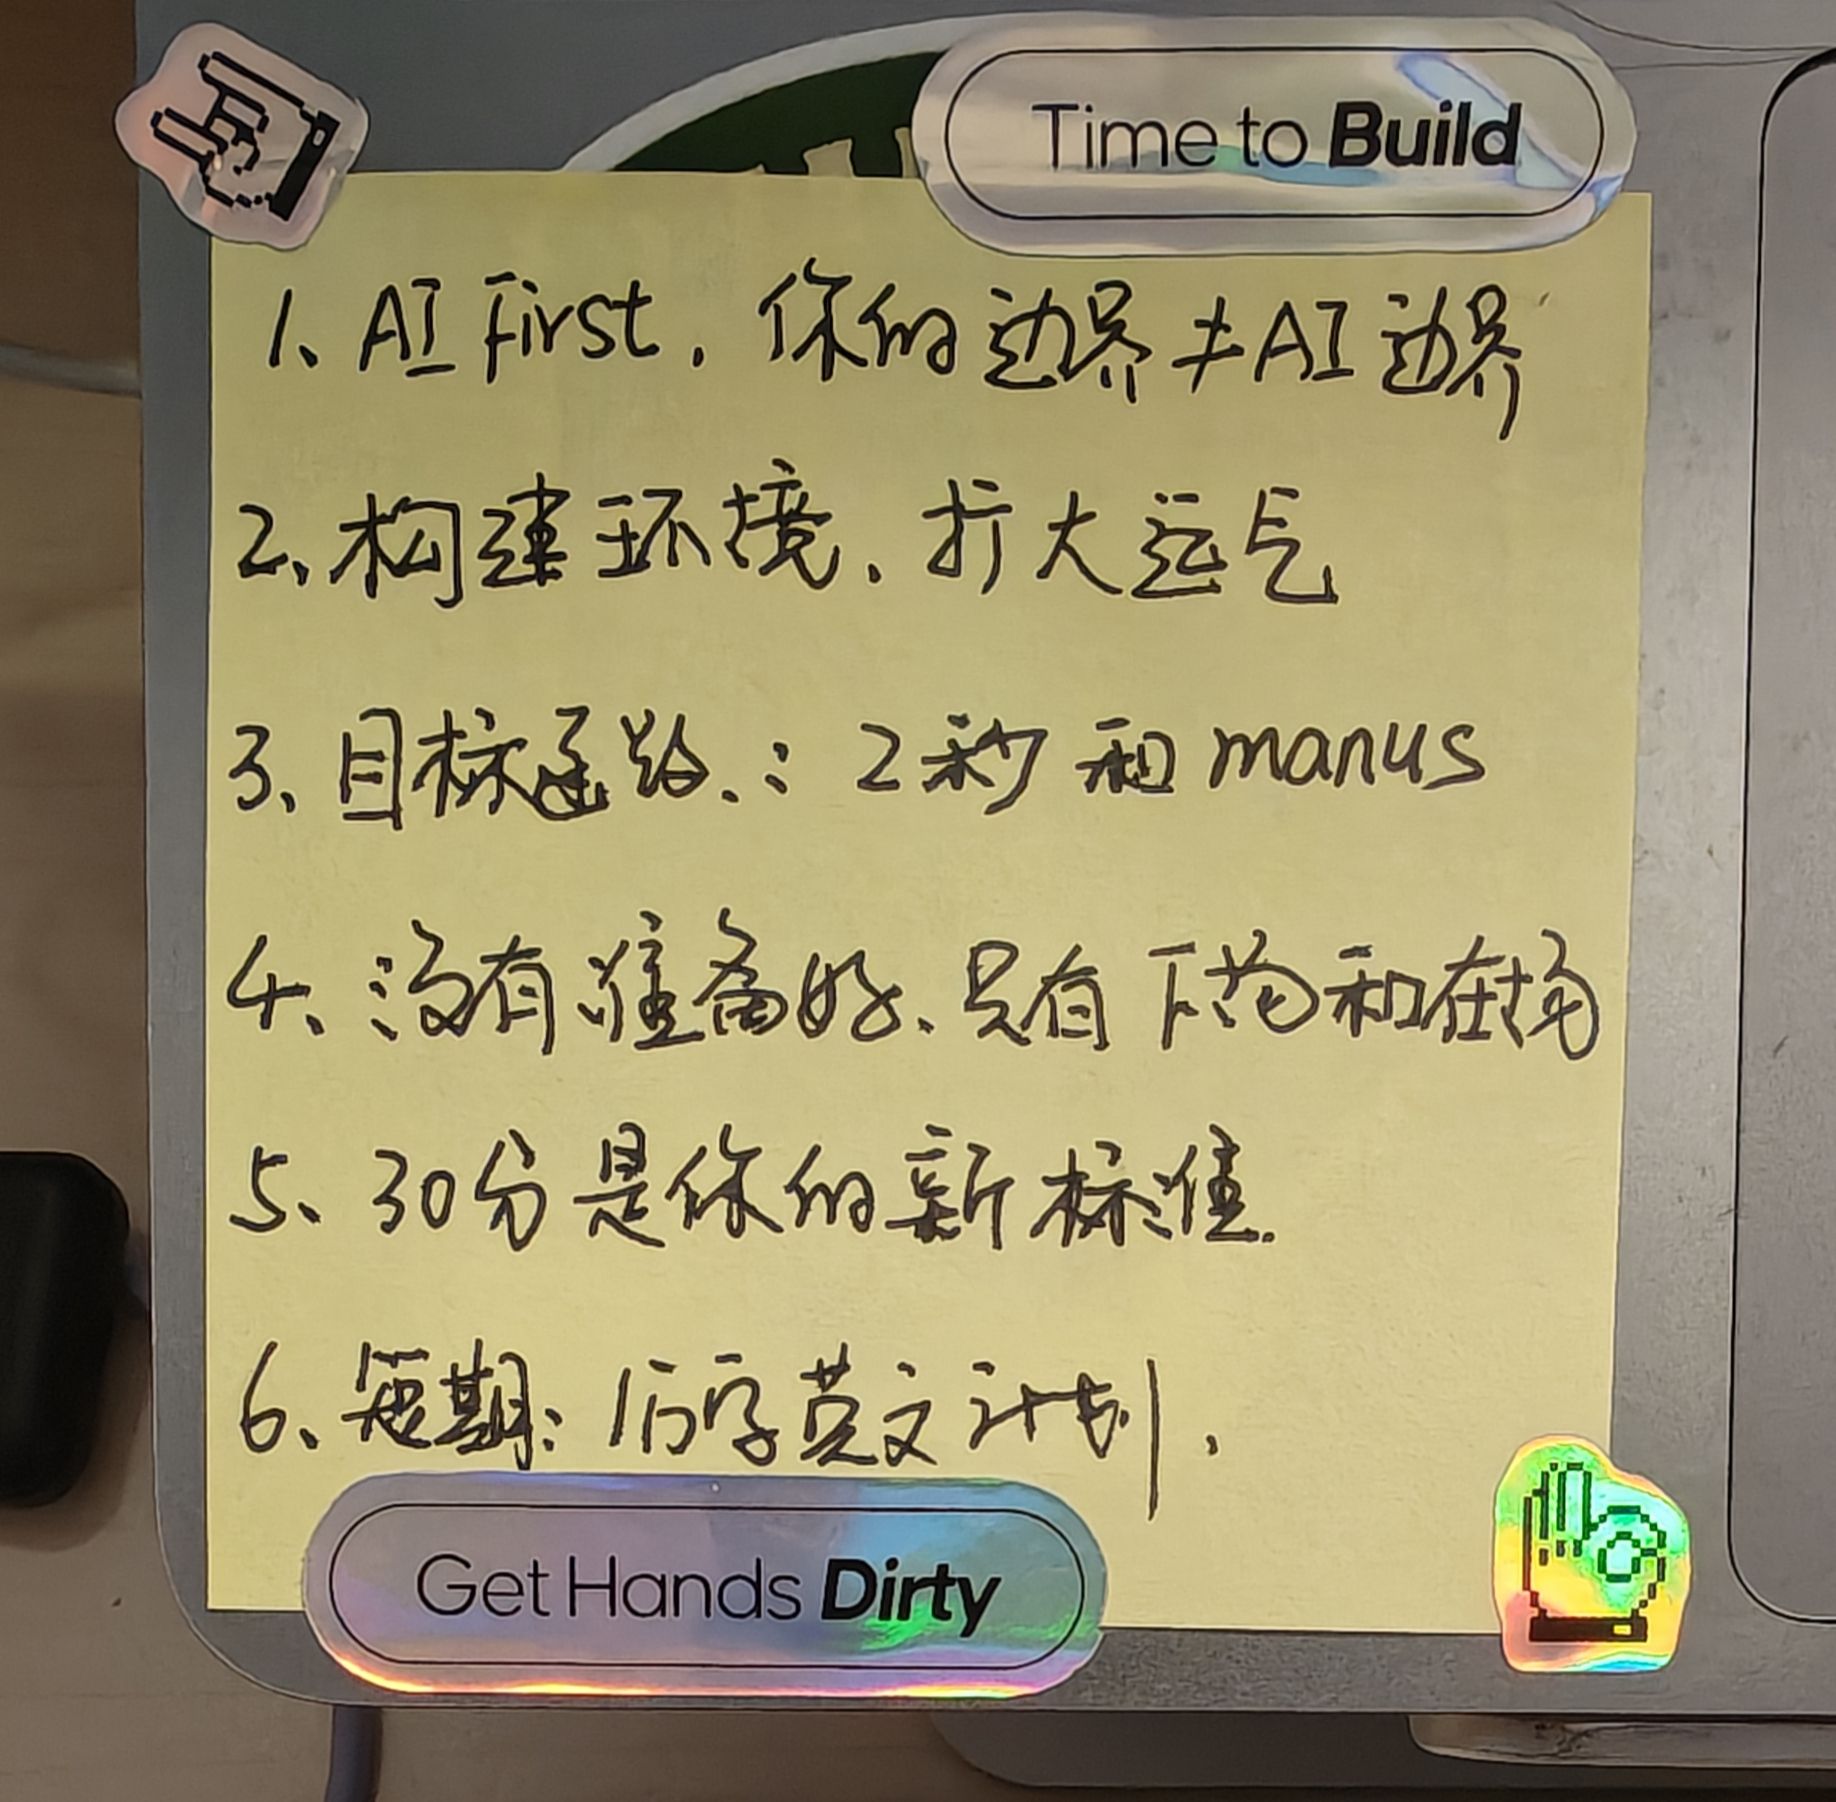 Time to Build
1、AI First, 你的边界≠AI边界
2、构建环境、扩大运气
3、目标函数: 2秒和manus
4、没有准备好、只有下药和在场
5、30分是你的新标准.
6、短期: 1万字英文计划.
Get Hands Dirty